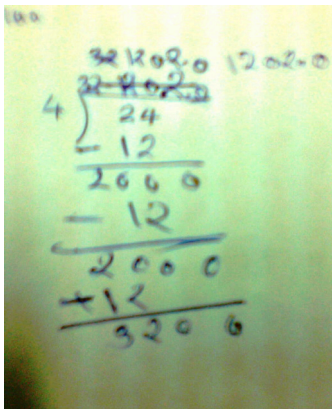 32 12 0 2 . 0 12 0 2 . 0
4
24
- 12
2000
- 12
2000
+ 12
3200